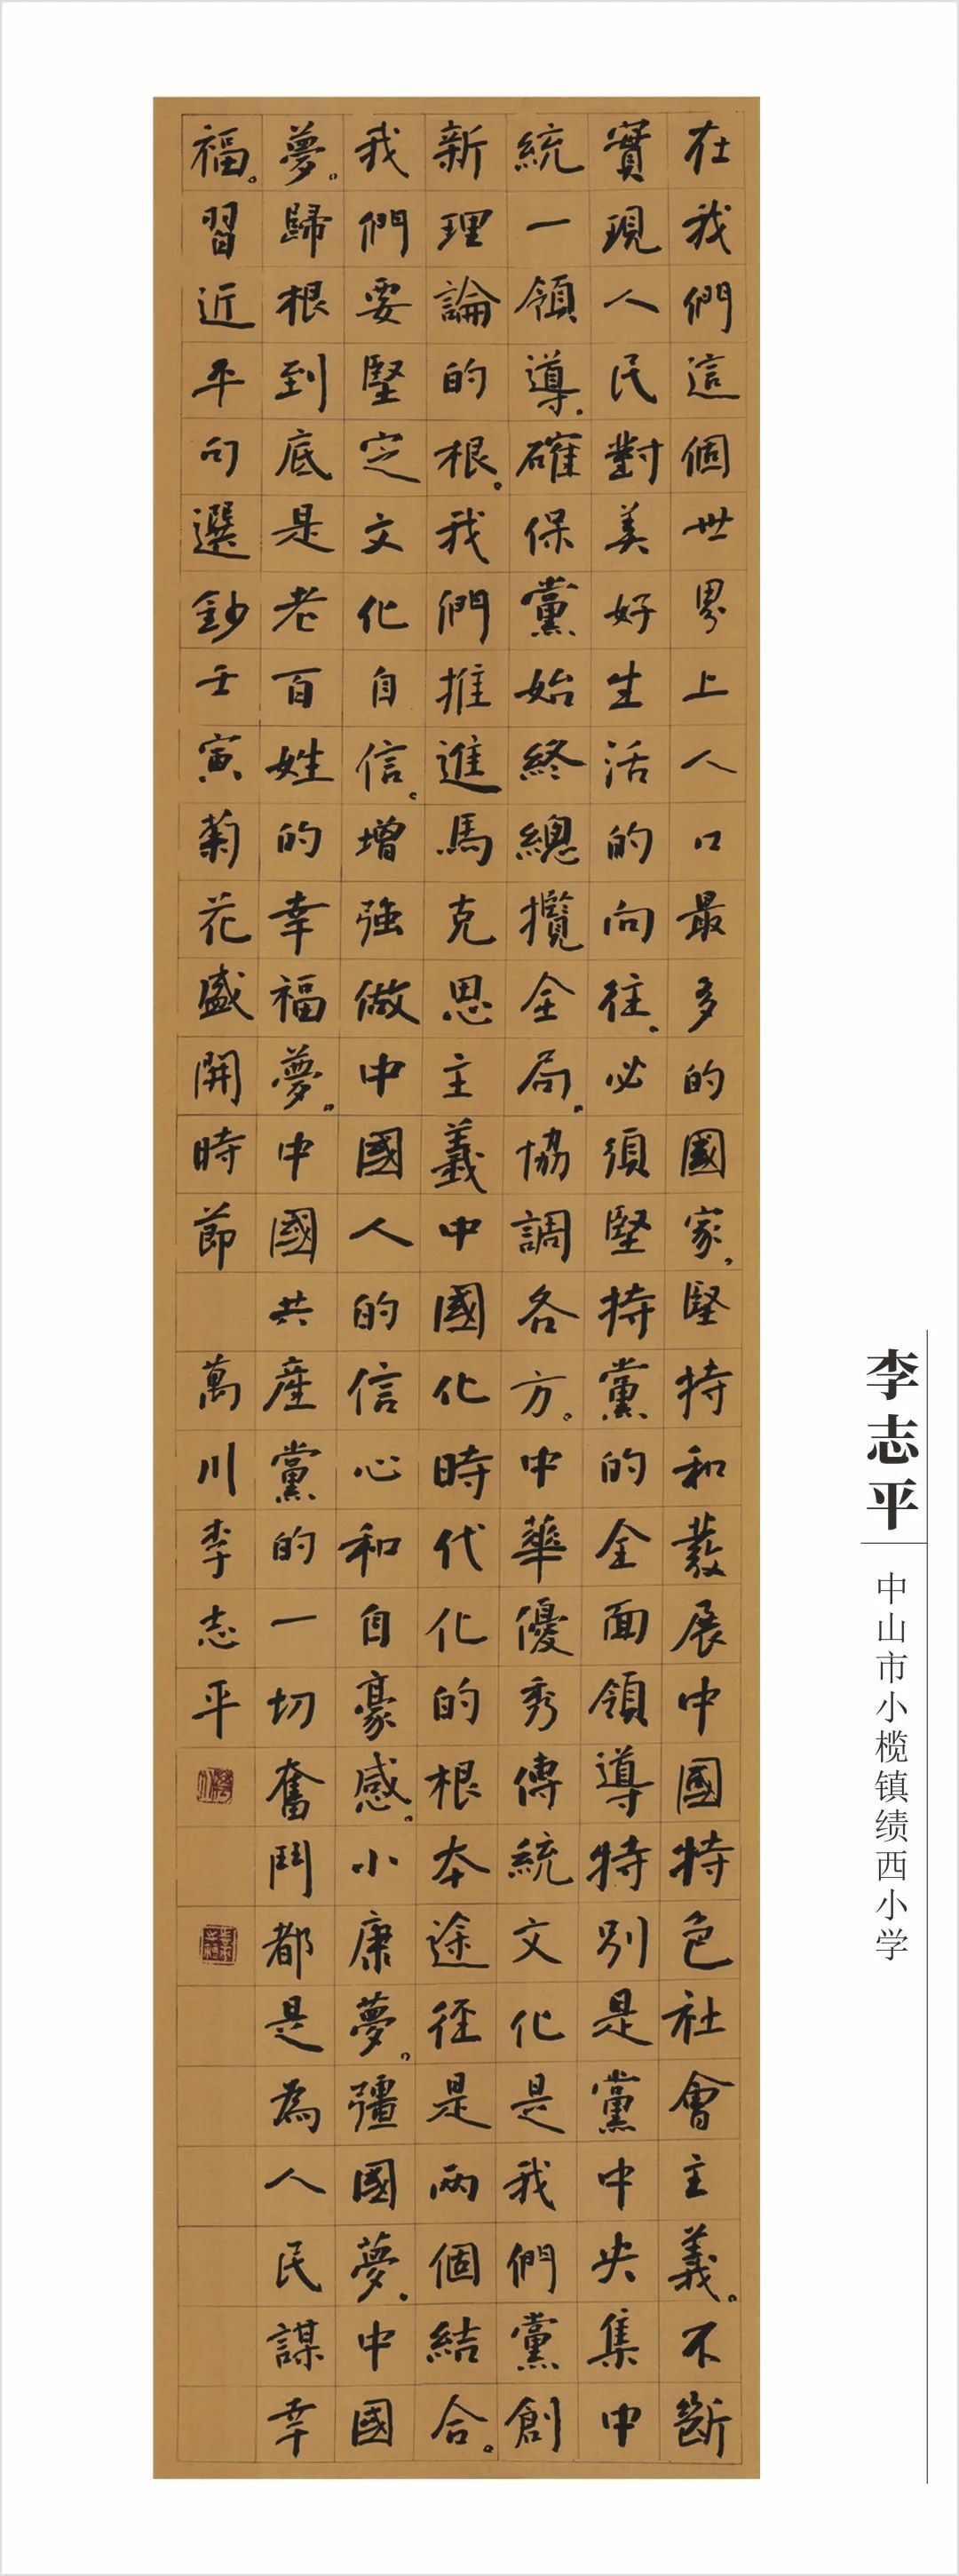 在我們這個世界上人口最多的國家，堅持和發展中國特色社會主義。不斷
實現人民對美好生活的向往。必須堅持黨的全面領導特別是黨中央集中
統一領導。確保黨始終總攬全局。協調各方。中華優秀傳統文化是我們黨創
新理論的根。我們推進馬克思主義中國化時代化的根本途徑是兩個結合。
我們要堅定文化自信。增強做中國人的信心和自豪感。小康夢。彊國夢。中國
夢。歸根到底是老百姓的幸福夢。中國共產黨的一切奮鬥都是為人民謀幸
福。習近平句選鈔壬寅菊花盛開時節 萬川李志平
李志平
中山市小榄镇绩西小学